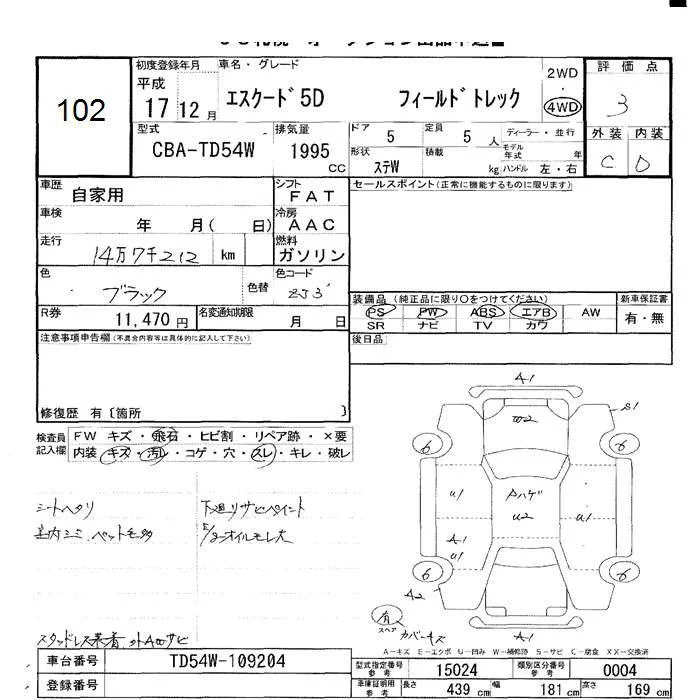 102
初度登録年月 車名・グレード 2WD 評価点
平成 17 12月 エスクード5D フィールドトレック 4WD 3
型式 排気量 ドア 定員 ディーラー・並行 外装 内装
CBA-TD54W 1995 CC 5 5人 モデル年式 年 C D
形状 ステW 積載 kg ハンドル 左・右
車歴 自家用 シフト FAT セールスポイント(正常に機能するものに限ります)
車検 年 月( 日) 冷房 AAC
走行 14万7千212 km 燃料 ガソリン
色 ブラック 色替 色コード ZJ3
装備品(純正品に限り○をつけてください) 新車保証書
PS PW ABS エアB AW 有・無
SR ナビ TV カワ
R券 11,470円 名変通知期限 月 日
後日品
注意事項申告欄(不具合内容等は具体的に記入して下さい)
修復歴 有〔箇所 〕
検査員記入欄 FW キズ・飛石・ヒビ割・リペア跡・×要
内装・キズ・汚レ・コゲ・穴・スレ・キレ・破レ
シートヘタリ 下廻リサビペイント
室内ミミ、ペットモ多 E/gオイルモレ大
スタッドレス装着 外ABサビ
A1
W2
S1
6 6
U1 Aハゲ
U2 U1
A1
U1
6 6
A2
有 スペア カバーキズ A1
A-キズ E-エクボ U-凹み W-補修跡 S-サビ C-腐食 XX-交換済
車台番号 TD54W-109204
登録番号
型式指定番号 参考 15024 類別区分番号 参考 0004
車庫証明用 参考 長さ 439cm 幅 181cm 高さ 169cm